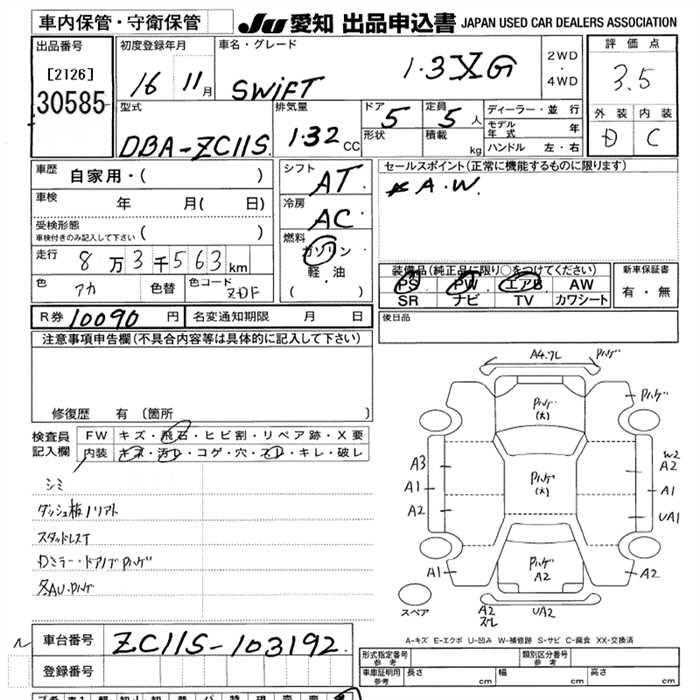 車内保管・守衛保管 JU 愛知 出品申込書 JAPAN USED CAR DEALERS ASSOCIATION
出品番号 初度登録年月 車名・グレード 2WD・4WD 評価点
[2126] 30585 16 11月 SWiFT 1.3XG 3.5
型式 排気量 ドア 5 定員 5人 ディーラー・並行 外装 内装
DBA-ZC11S 1.32 CC 形状 積載 kg モデル年式 年 D C
ハンドル 左・右
車歴 自家用・( ) シフト AT セールスポイント(正常に機能するものに限ります)
車検 年 月( 日) 冷房 AC A.W.
受検形態 車検付きのみ記入して下さい ( ) 燃料 ガソリン・軽油 ( )
走行 8万3千563km 装備品(純正品に限り○をつけてください) 新車保証書
色 アカ 色替 色コード ZDF PS PW エアB AW 有・無
SR ナビ TV カワシート
R券 10090 円 名変通知期限 月 日 後日品
注意事項申告欄(不具合内容等は具体的に記入して下さい)
修復歴 有 (箇所 )
検査員記入欄 FW キズ・飛石・ヒビ割・リペア跡・X要
内装 キズ・汚レ・コゲ・穴・スレ・キレ・破レ
シミ
ダッシュ板ノリアト
スタッドレスT
Dミラー・ドアノブPハゲ
AU・Pハゲ
A4.ワレ Pハゲ
Pハゲ(大) Pハゲ
A3 W2 A2
A1 Pハゲ(大) A1
A2 UA1
A1 Pハゲ A2 A2
スペア A2 スレ UA2
A-キズ E-エクボ U-凹み W-補修跡 S-サビ C-腐食 XX-交換済
車台番号 ZC11S-103192
登録番号
形式指定番号 参考 類別区分番号 参考
車庫証明用 参考 長さ cm 幅 cm 高さ cm